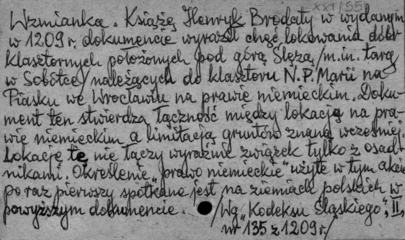 XXI/55
Wzmianka. Książę Henryk Brodaty w wydanym
w 1209 r. dokumencie wyraził chęć lokowania dóbr
klasztornych położonych pod górą Ślężą, /m.in. targ
w Sobótce/ należących do klasztoru N.P. Marii na
Piasku we Wrocławiu na prawie niemieckim. Doku-
ment ten stwierdza łączność między lokacją na pra-
wie niemieckim a limitacją gruntów znaną wcześniej.
Lokację tę nie łączy wyraźnie związek tylko z osad-
nikami. Określenie "prawo niemieckie" użyte w tym akcie
po raz pierwszy spotkane jest na ziemiach polskich w
powyższym dokumencie. /Wg "Kodeksu Śląskiego", II,
nr 135 z 1209 r./